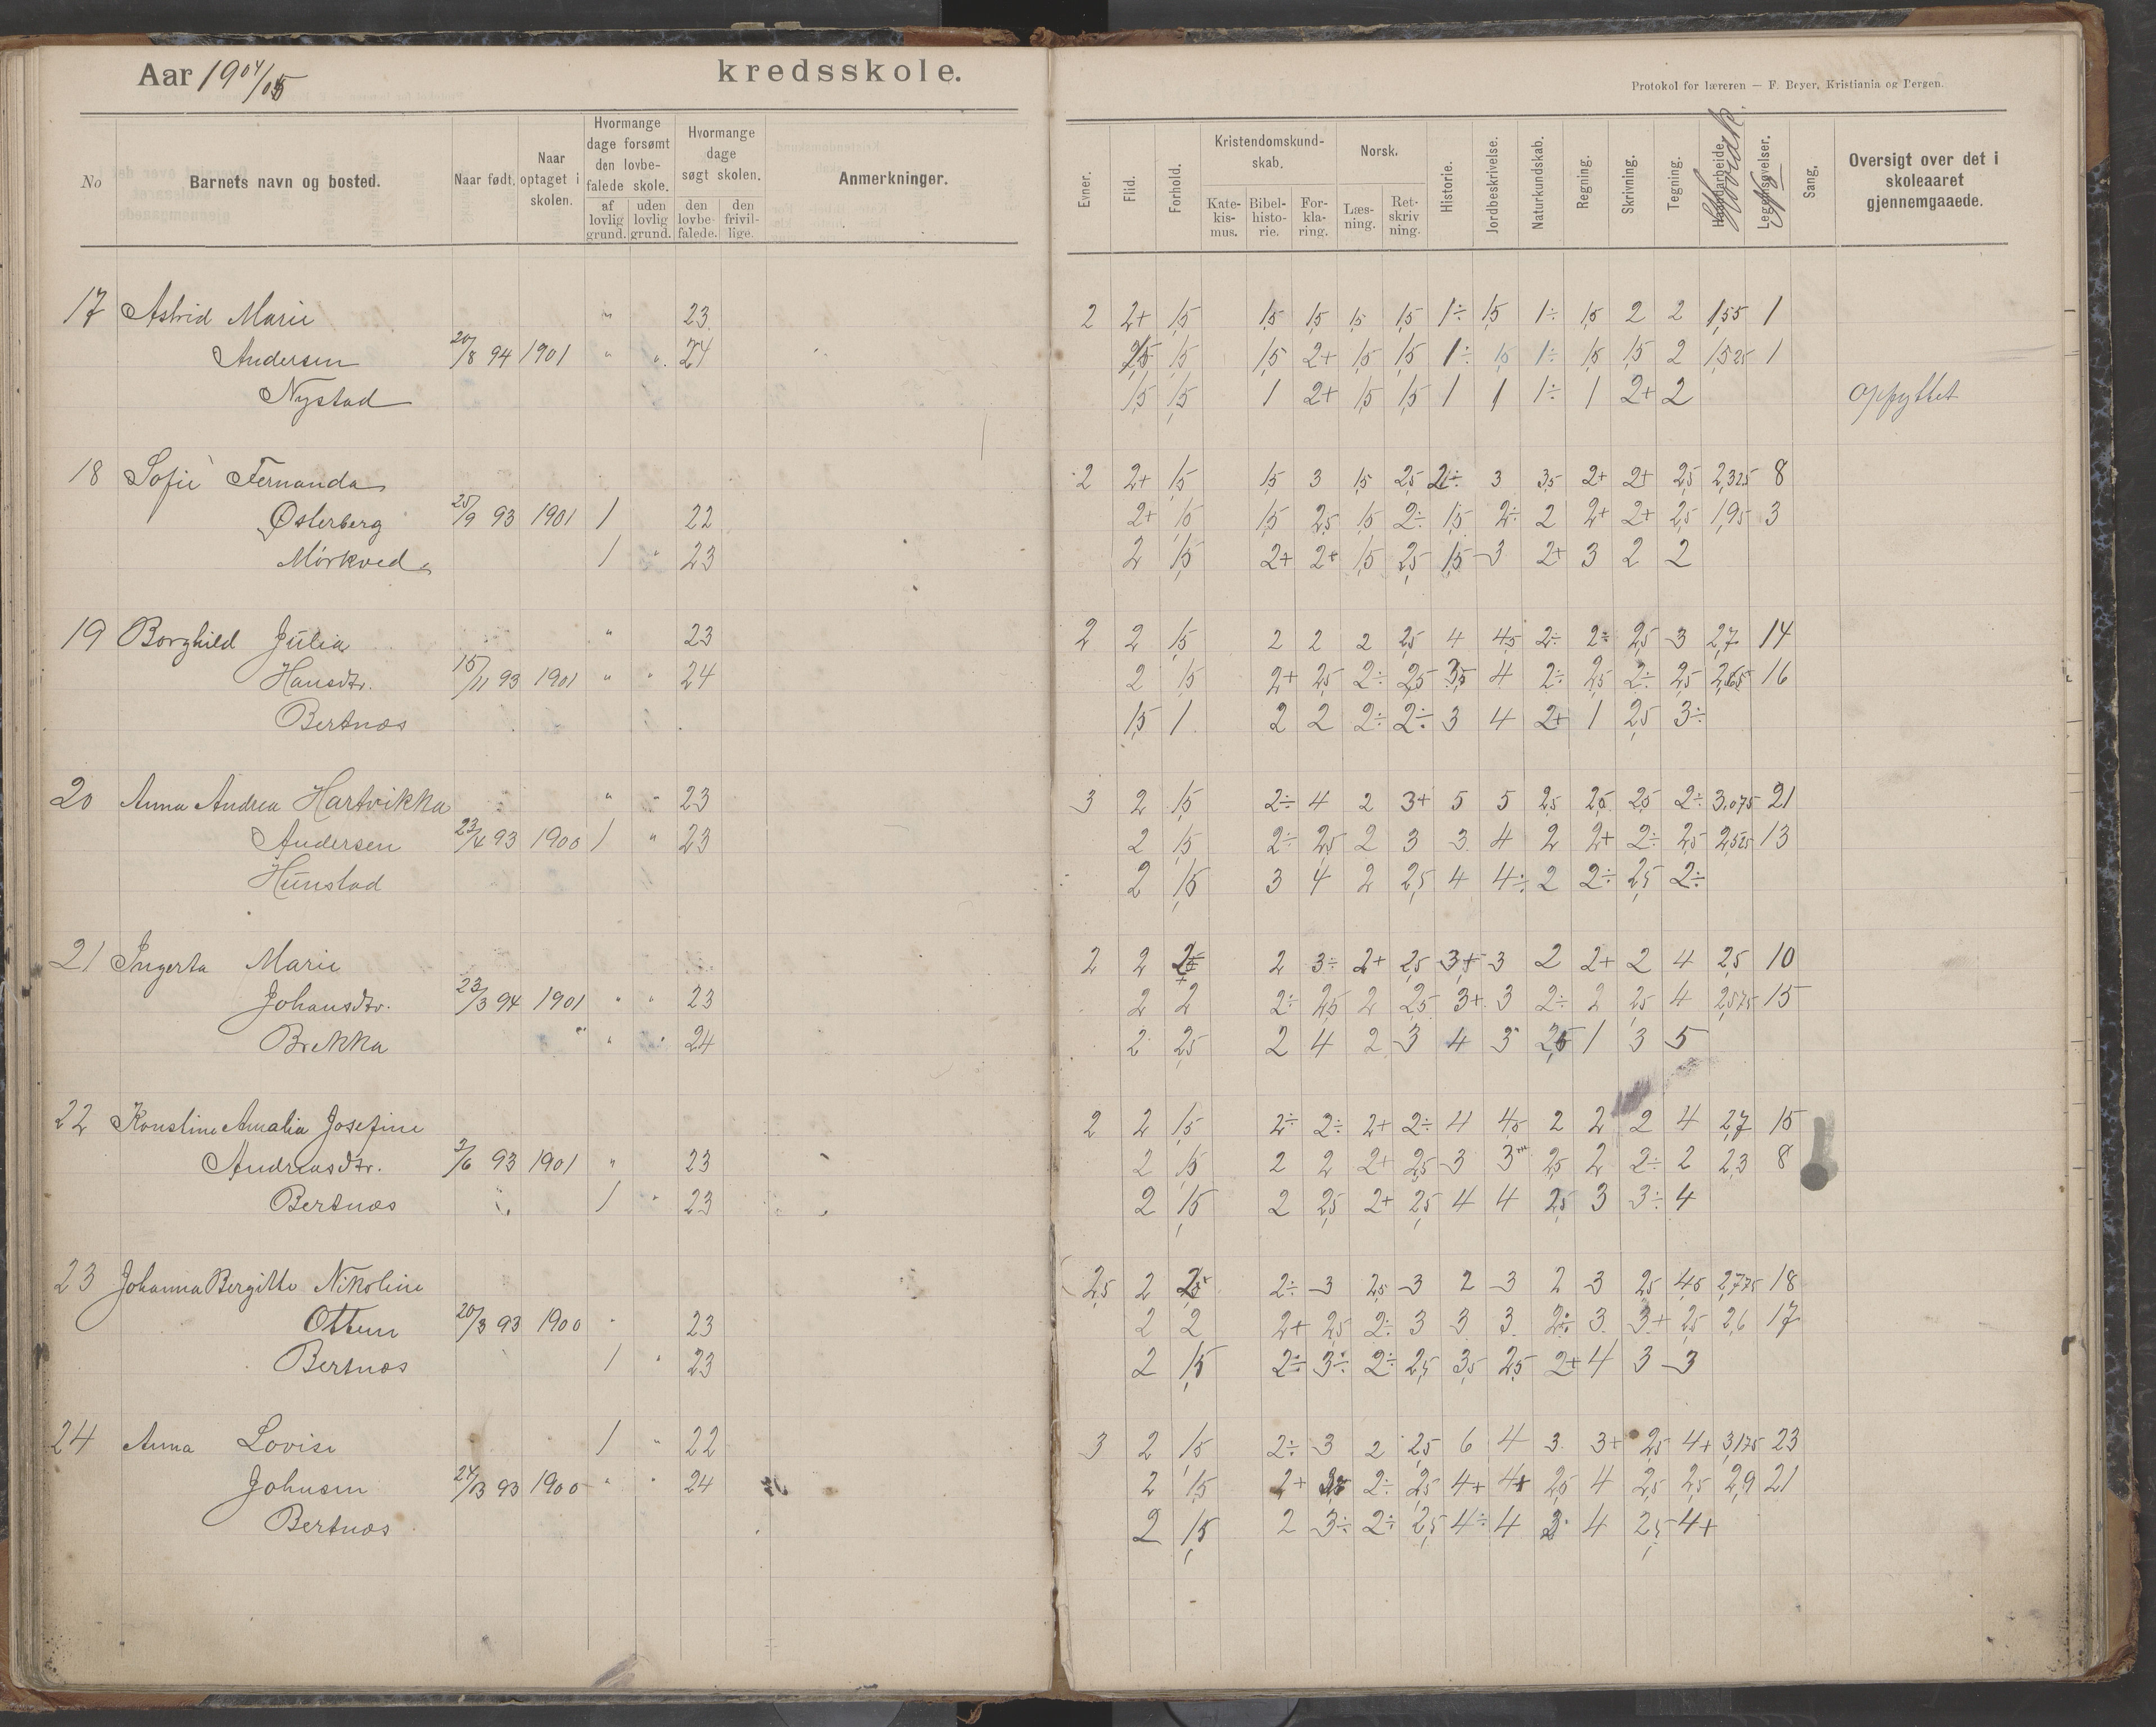 Aar 1904/05 kredsskole.
Protokol for læreren — F. Beyer, Kristiania og Bergen.
No Barnets navn og bosted. Naar født. Naar optaget i skolen. Hvormange dage forsømt den lovbefalede skole. af lovlig grund. uden lovlig grund. Hvormange dage søgt skolen. den lovbefalede. den frivillige. Anmerkninger.
Evner. Flid. Forhold. Kristendomskundskab. Katekismus. Bibelhistorie. Forklaring. Norsk. Læsning. Retskrivning. Historie. Jordbeskrivelse. Naturkundskab. Regning. Skrivning. Tegning. Haandarbeide. Hovedk. Legemsøvelser. Sang. Oversigt over det i skoleaaret gjennemgaaede.
17 Astrid Marie " 23 2 2+ 1,5 1,5 1,5 1,5 1,5 1÷ 1,5 1÷ 1,5 2 2 1,55 1
Andersen 20/8 94 1901 " " 24 2,5 1,5 1,5 2+ 1,5 1,5 1÷ 1,5 1÷ 1,5 1,5 2 1,525 1
Nystad 1,5 1,5 1 2+ 1,5 1,5 1 1 1÷ 1 2+ 2 opfyttet
18 Sofie Fernanda 2 2+ 1,5 1,5 3 1,5 2,5 2÷ 3 3,5 2+ 2+ 2,5 2,325 8
Østerberg 25/9 93 1901 1 22 2+ 1,5 1,5 2,5 1,5 2÷ 1,5 2÷ 2 2+ 2+ 2,5 1,95 3
Mörkved 1 " 23 2 1,5 2+ 2+ 1,5 2,5 1,5 3 2+ 3 2 2
19 Borghild Julia " 23 2 2 1,5 2 2 2 2,5 4 4,5 2÷ 2÷ 2,5 3 2,7 14
Hansdtr. 15/11 93 1901 " " 24 2 1,5 2+ 2,5 2÷ 2,5 3,5 4 2÷ 2,5 2÷ 2,5 2,65 16
Bertnæs 1,5 1 2 2 2÷ 2÷ 3 4 2+ 1 2,5 3÷
20 Anna Andrea Hartvikka " " 23 3 2 1,5 2÷ 4 2 3+ 5 5 2,5 2,5 2,5 2÷ 3,075 21
Andersen 23/4 93 1900 1 " 23 2 1,5 2÷ 2,5 2 3 3 4 2 2+ 2÷ 2,5 2,525 13
Hunstad 2 1,5 3 4 2 2,5 4 4÷ 2 2÷ 2,5 2÷
21 Ingerta Marie 2 2 2 3÷ 2+ 2,5 3+ 3 2 2+ 2 4 2,5 10
Johansdtr. 23/3 94 1901 " " 23 2 2 2÷ 2,5 2 2,5 3+ 3 2÷ 2 2,5 4 2,575 15
Brekka " " " 24 2 2,5 2 4 2 3 4 3 2,5 1 3 5
22 Konstine Amalia Josefine 2 2 1,5 2÷ 2÷ 2+ 2÷ 4 4,5 2 2 2 4 2,7 15
Andreasdtr. 2/6 93 1901 " 23 2 1,5 2 2 2+ 2,5 3 3 2,5 2 2÷ 2 2,3 8
Bertnæs 1 " 23 2 1,5 2 2,5 2+ 2,5 4 4 2,5 3 3÷ 4
23 Johanna Bergitte Nikoline 2,5 2 2,5 2÷ 3 2,5 3 2 3 2 3 2,5 4,5 2,775 18
Ottem 20/3 93 1900 " 23 2 2 2+ 2,5 2÷ 3 3 3 2÷ 3 3+ 2,5 2,6 17
Bertnæs 1 " 23 2 1,5 2÷ 3÷ 2÷ 2,5 3,5 2,5 2+ 4 3 3
24 Anna Lovise 1 " 22 3 2 1,5 2÷ 3 2 2,5 6 4 3 3+ 2,5 4+ 3,175 23
Johnsen 24/3 93 1900 " " 24 2 1,5 2+ 2÷ 2,5 4+ 4+ 2,5 4 2,5 2,5 2,9 21
Bertnæs 2 1,5 2 3÷ 2÷ 2,5 4÷ 4 3 4 2,5 4+